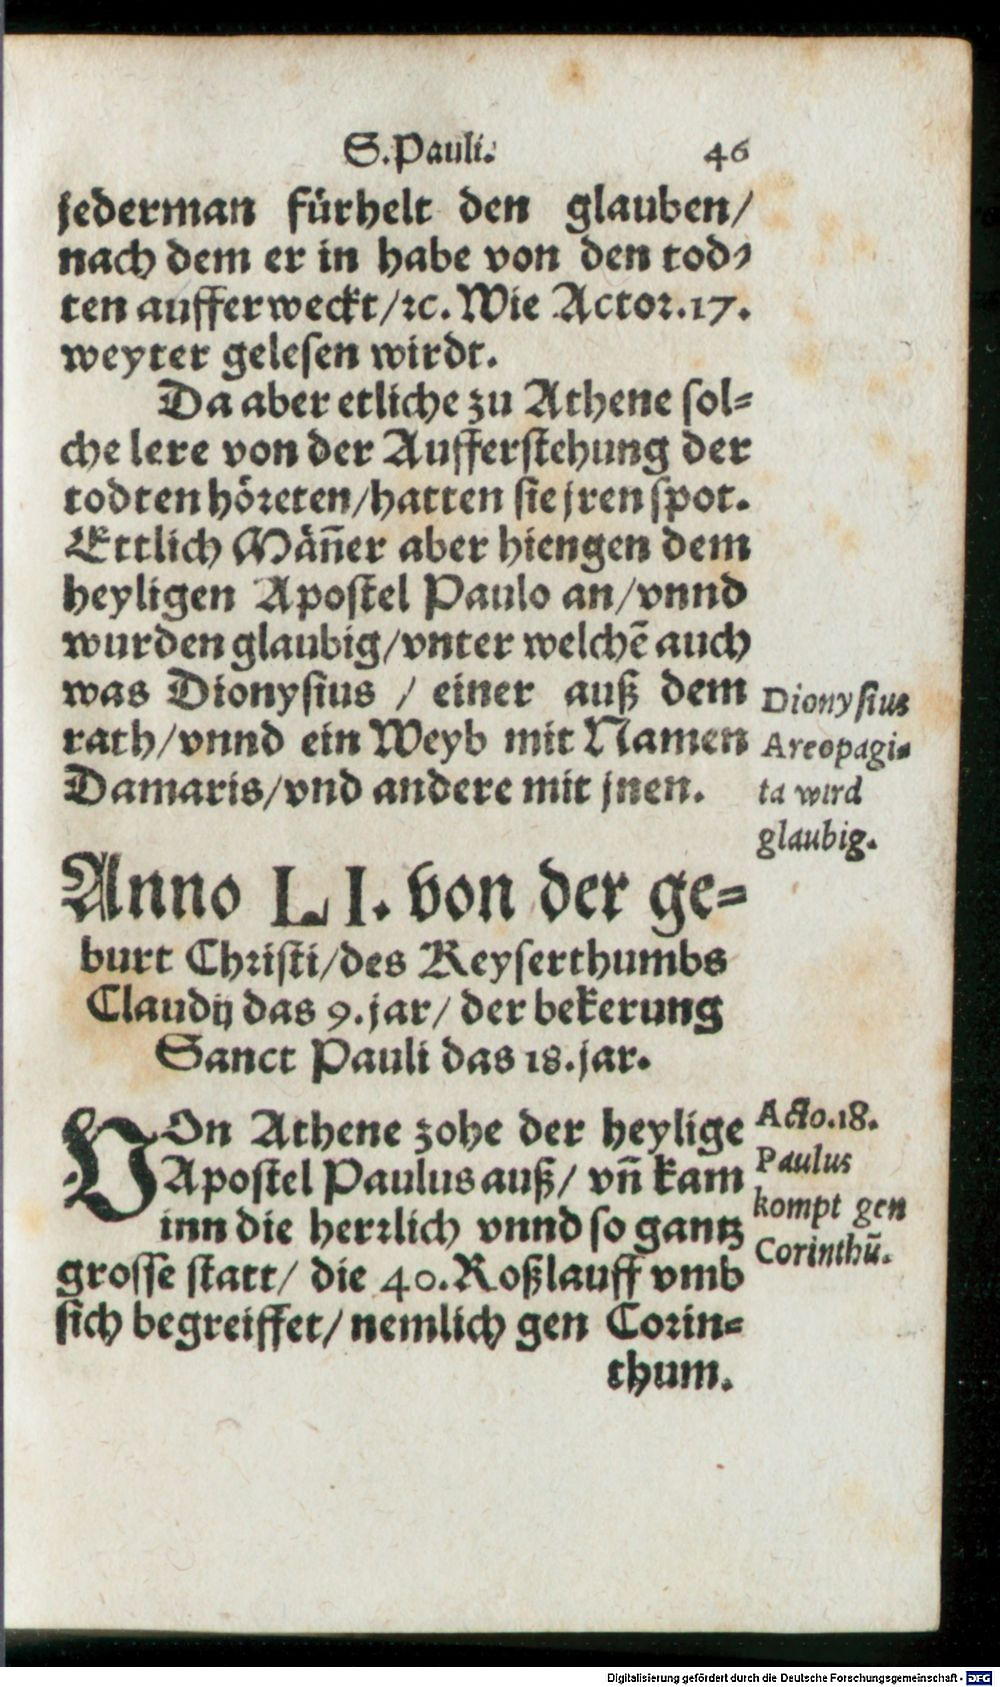 S. Pauli. 46
jederman fürhelt den glauben/
nach dem er in habe von den tod⸗
ten aufferweckt/ꝛc. Wie Actor. 17.
weyter gelesen wirdt.
Da aber etliche zu Athene sol⸗
che lere von der Aufferstehung der
todten höreten/hatten sie jren spot.
Ettlich Män̄er aber hiengen dem
heyligen Apostel Paulo an/vnnd
wurden glaubig/vnter welchē auch
was Dionysius / einer auß dem
rath/vnnd ein Weyb mit Namen
Damaris/vnd andere mit jnen.
Dionysius
Areopagi⸗
ta wird
glaubig.
Anno LI. von der ge⸗
burt Christi/des Keyserthumbs
Claudij das 9. jar/ der bekerung
Sanct Pauli das 18. jar.
VOn Athene zohe der heylige
Apostel Paulus auß/ vn̄ kam
inn die herrlich vnnd so gantz
grosse statt/ die 40. Roßlauff vmb
sich begreiffet/ nemlich gen Corin⸗
thum.
Acto. 18.
Paulus
kompt gen
Corinthū.
Digitalisierung gefördert durch die Deutsche Forschungsgemeinschaft - DFG